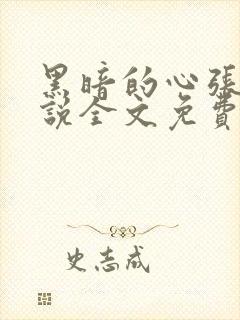 黑暗的心張
說全文免費
史志成